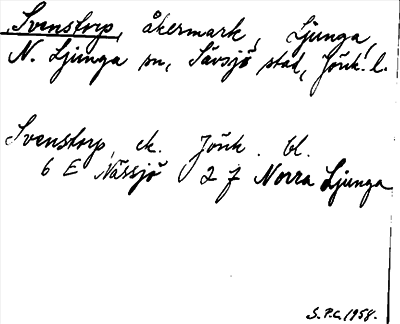 Svenstorp, åkermark, Ljunga,
N. Ljunga sn, Sävsjö stad, Jönk. l.
Svenstorp, ek. Jönk. bl.
6 E Nässjö 2 f Norra Ljunga
S.P.G. 1958.